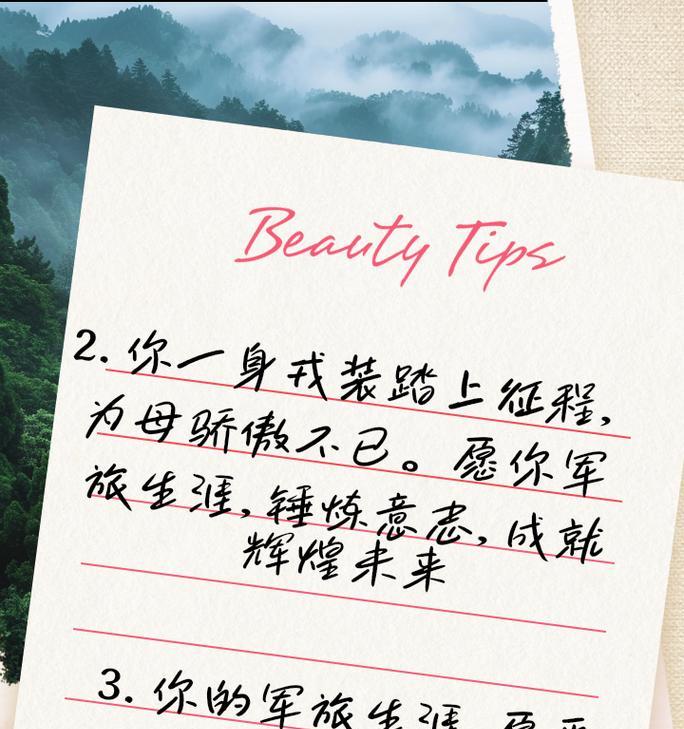 Beauty Tips
2. 你一身戎装踏上征程,
为母骄傲不已。愿你军
旅生涯,锤炼意志,成就
辉煌未来
3. 你的军旅生涯